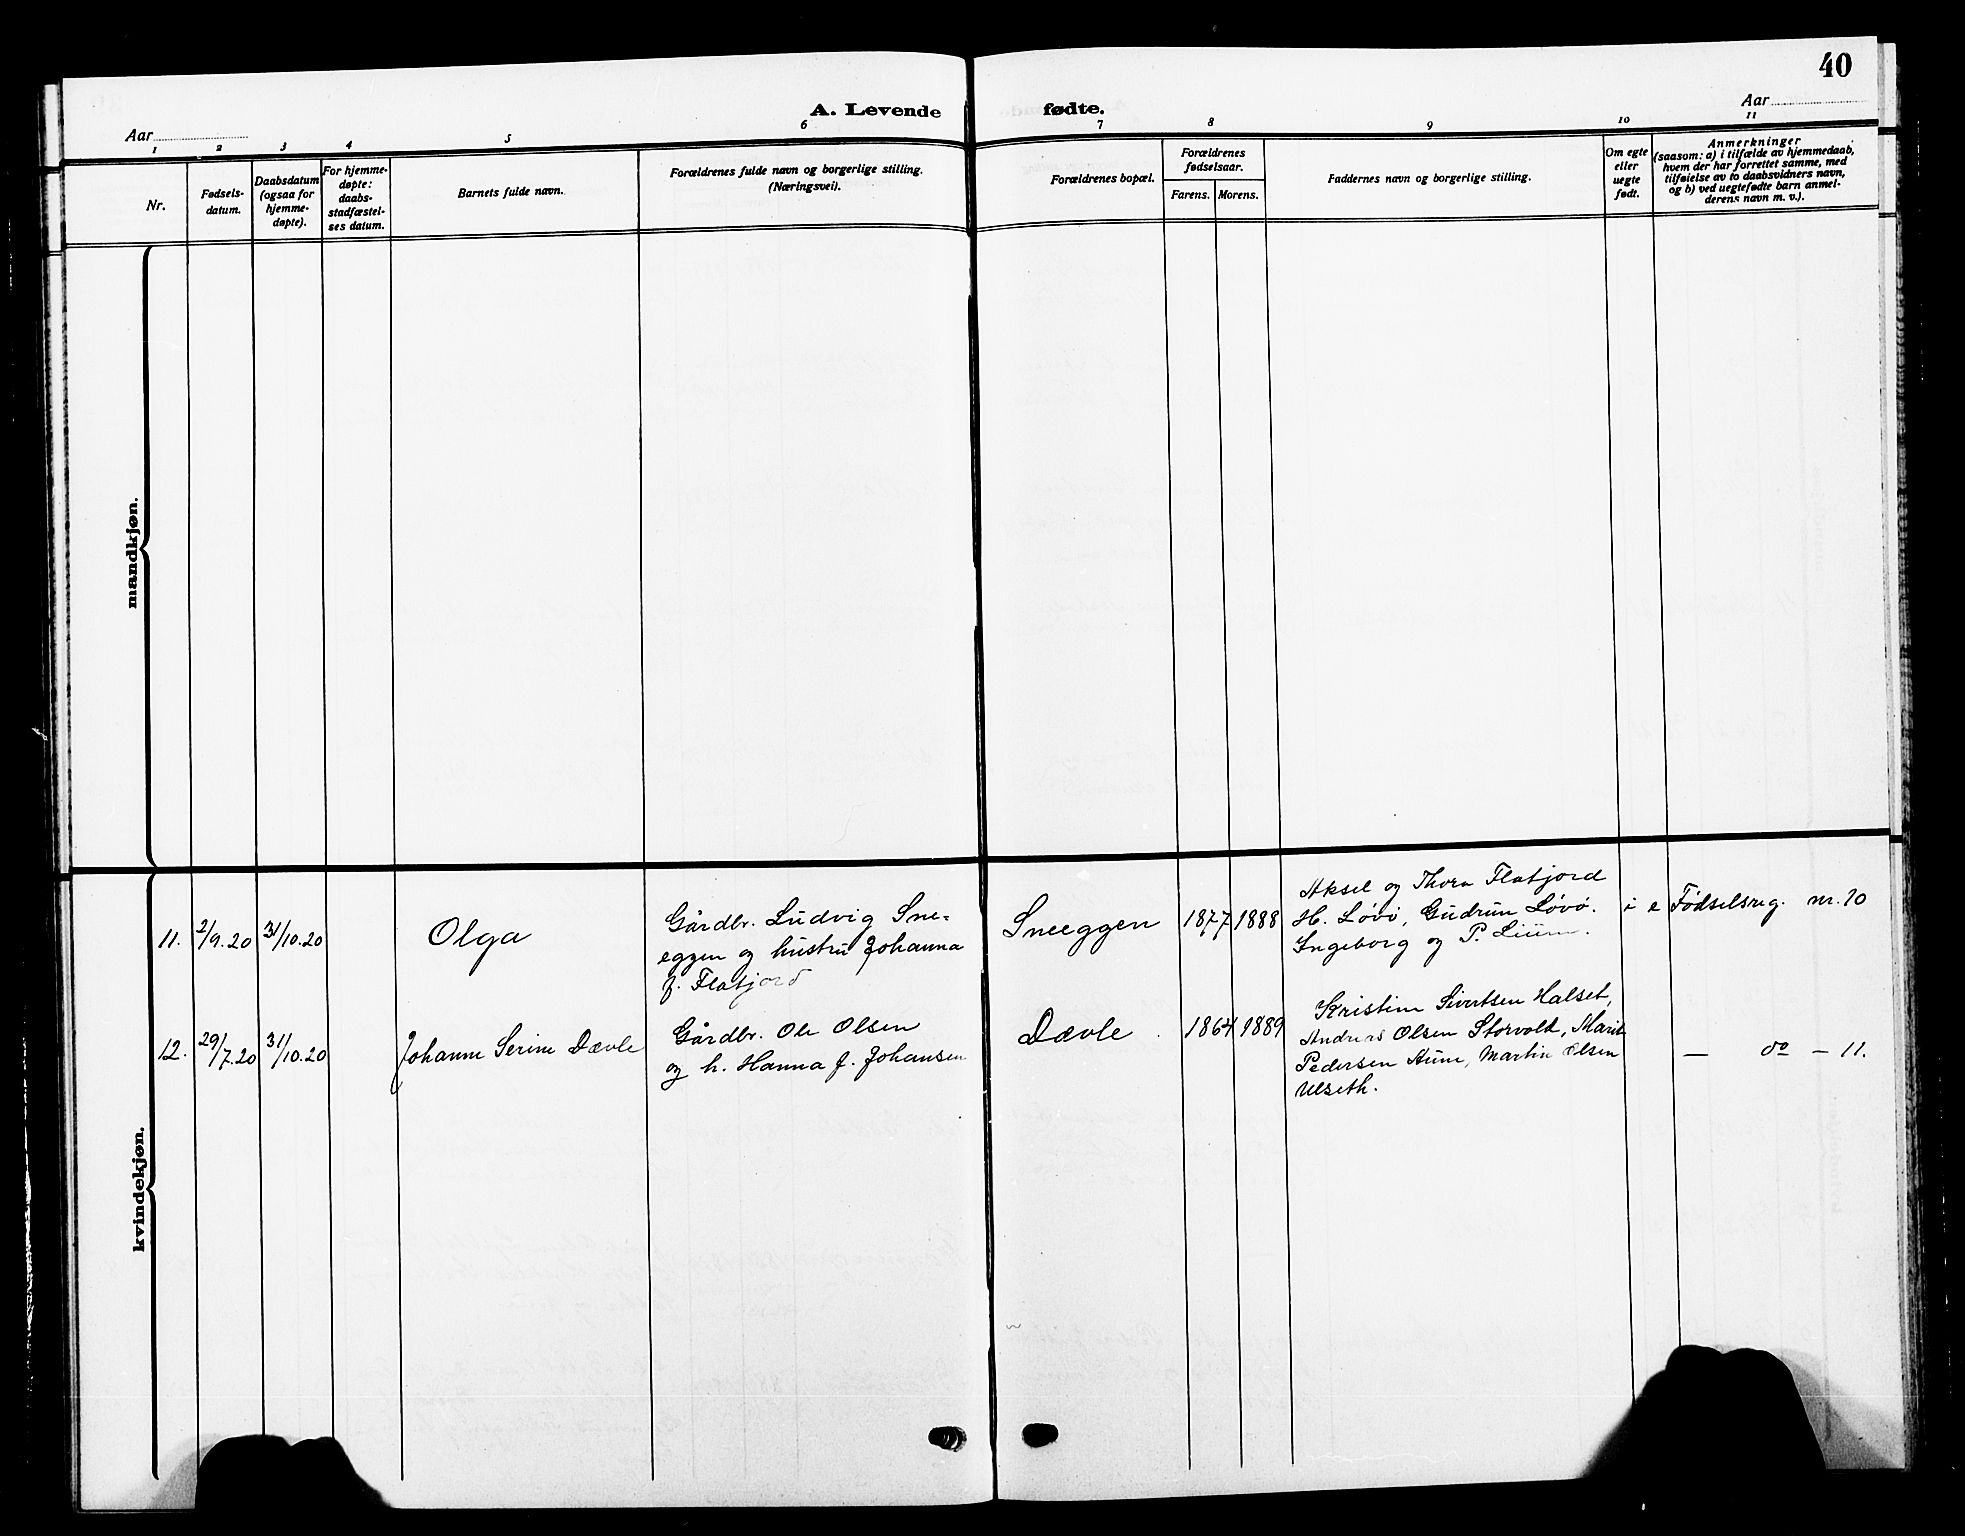 40
A. Levende fødte.
Aar
Aar
1 2 3 4 5 6 7 8 9 10 11
Nr.
Fødsels-
datum.
Daabsdatum
(ogsaa for
hjemme-
døpte).
For hjemme-
døpte:
daabs-
stadfæstel-
ses datum.
Barnets fulde navn.
Forældrenes fulde navn og borgerlige stilling.
(Næringsvei).
Forældrenes bopæl.
Forældrenes
fødselsaar.
Farens. Morens.
Faddernes navn og borgerlige stilling.
Om egte
eller
uegte
født.
Anmerkninger
(saasom: a) i tilfælde av hjemmedaab,
hvem der har forrettet samme, med
tilføielse av to daabsvidners navn,
og b) ved uegtefødte barn anmel-
derens navn m. v.).
mandkjøn.
kvindekjøn.
11. 2/9.20 31/10.20
Olga
Gårdbr. Ludvig Sne-
eggen og hustru Johanna
f. Flatjord
Sneeggen
1877 1888
Aksel og Thora Flatjord
H. Løvø, Gudrun Løvø.
Ingeborg og P. Lium.
i e
Fødselsreg. nr. 10
12. 29/7.20 31/10.20
Johanne Serine Dævle
Gårdbr. Ole Olsen
og h. Hanna f. Johansen
Dævle
1864 1889
Kristine Sivertsen Halset,
Andreas Olsen Storvold, Marit
Pedersen Aune, Martin Olsen
Ulseth.
— do — 11.